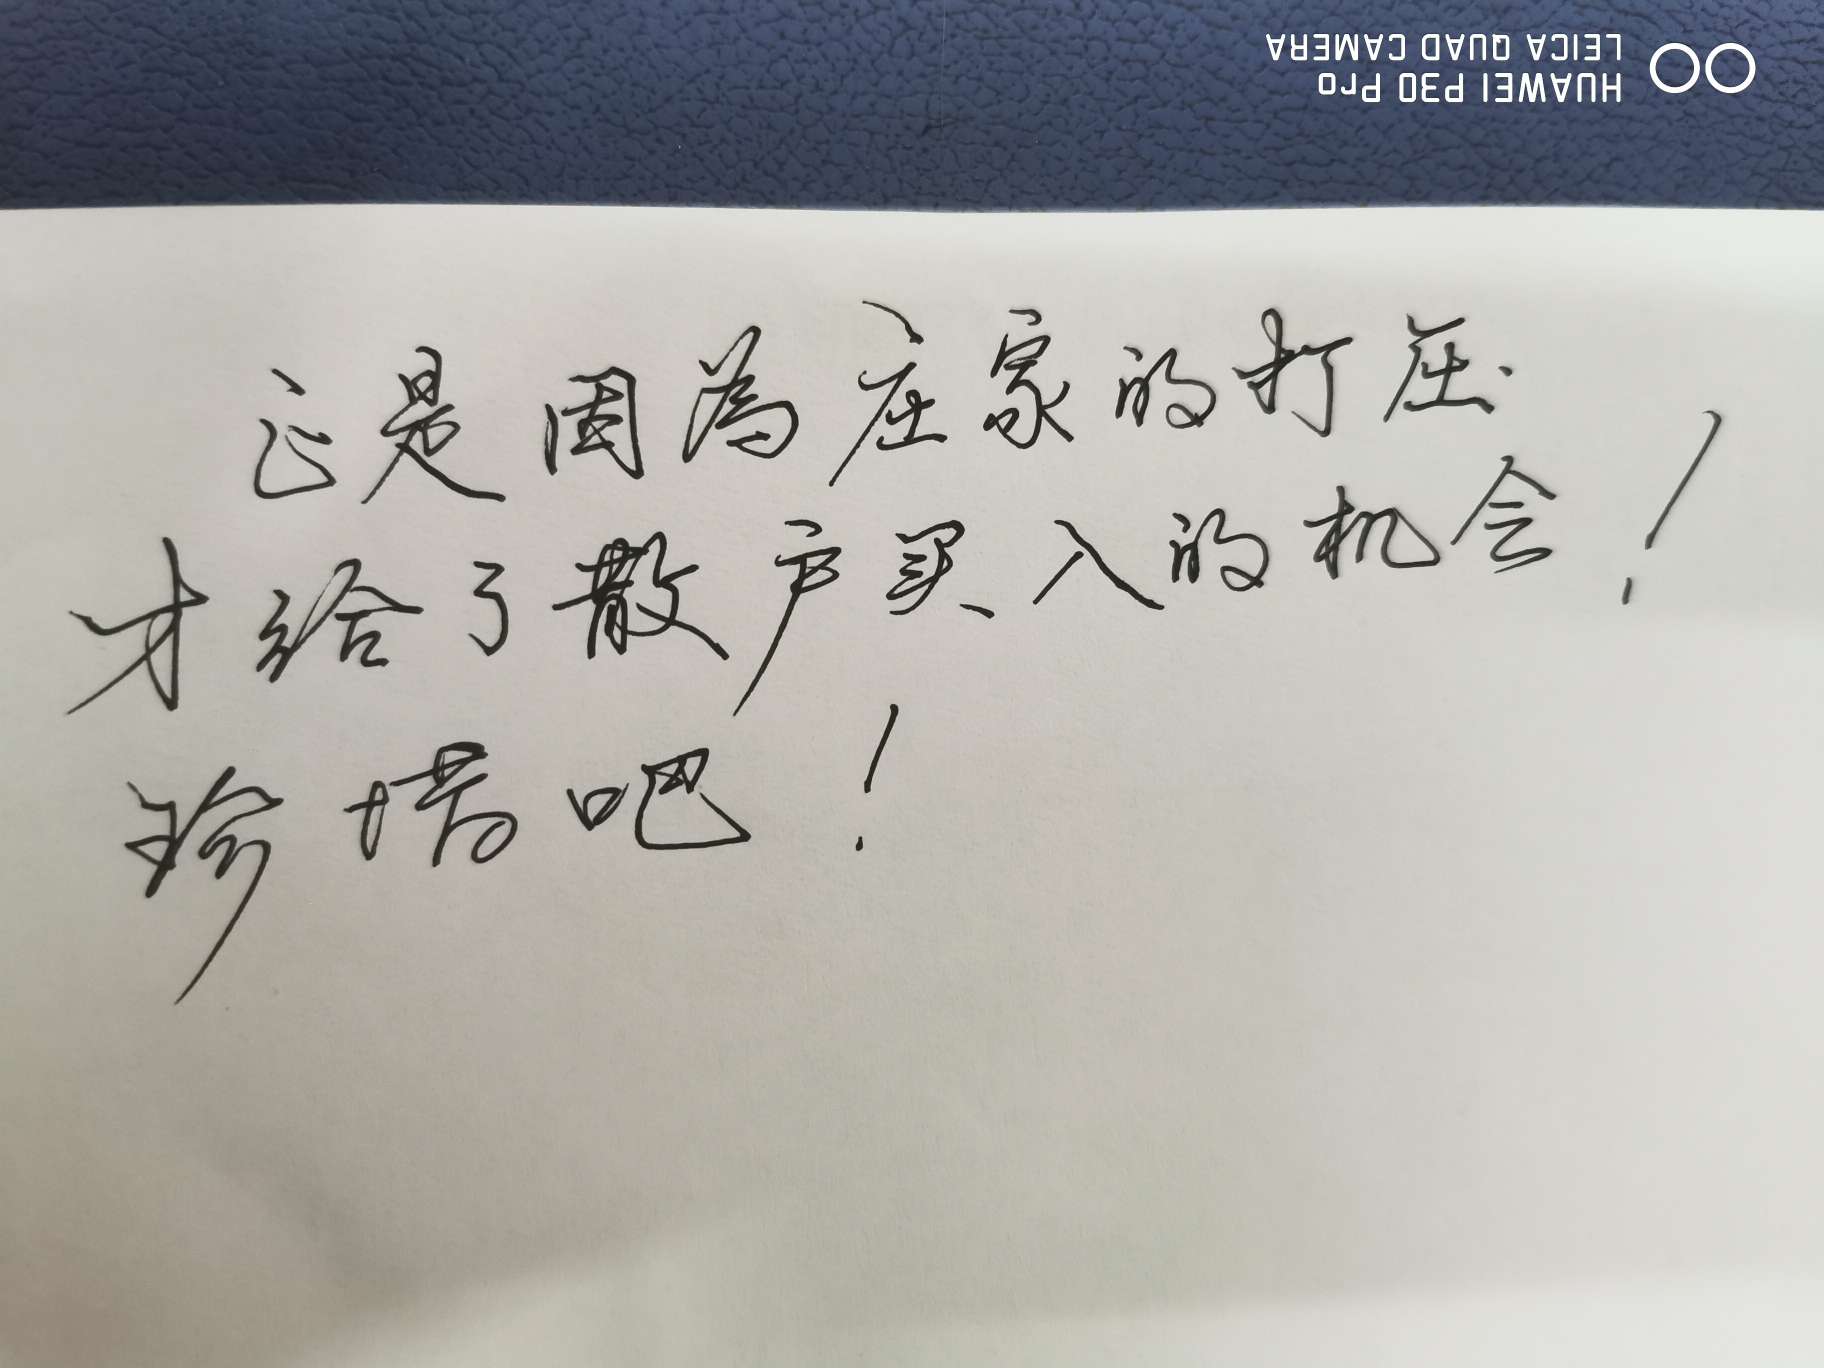 HUAWEI P30 Pro
LEICA QUAD CAMERA
正是因為庄家的打压
才给了散户买入的机会！
珍惜吧！